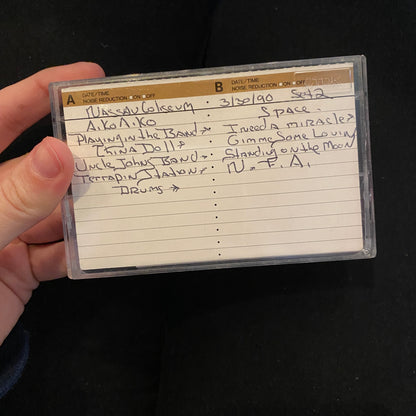 A DATE/TIME
NOISE REDUCTION ON OFF
B DATE/TIME
NOISE REDUCTION ON OFF
Nassau Coliseum 3/30/90 Set 2
Aiko Aiko
Playing in the Band→
China Doll→
Uncle John's Band→
Terrapin Station→
Drums→
Space.
I need a miracle→
Gimme Some Lovin
Standing on the Moon
N. F. A.